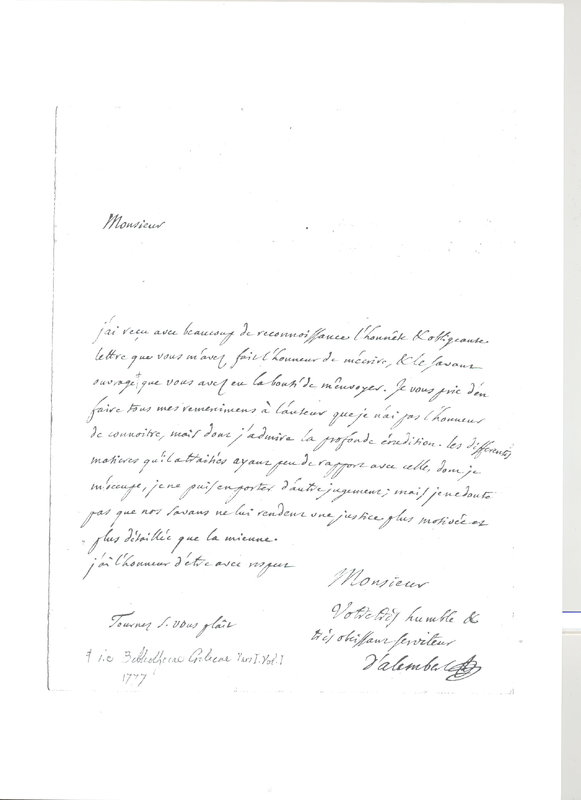 Monsieur
j'ai reçu avec beaucoup de reconnoissance l'honnête & obligeante
lettre que vous m'avez fait l'honneur de m'écrire, & le savant
ouvrage† que vous avez eu la bonté de m'envoyer. Je vous prie d'en
faire tous mes remerimens à l'auteur que je n'ai pas l'honneur
de connoitre, mais dont j'admire la profonde érudition. les differentes
matieres qu'il a traitées ayant peu de rapport avec celle, dont je
m'occupe, je ne puis en porter d'autre jugement; mais je ne doute
pas que nos savans ne lui rendent une justice plus motivée et
plus détaillée que la mienne.
j'ai l'honneur d'être avec respect
Monsieur
Votre très humble &
très obeissant serviteur
D'alembert
Tournez s. vous plait
† i.e. Part I. Vol. I
1777